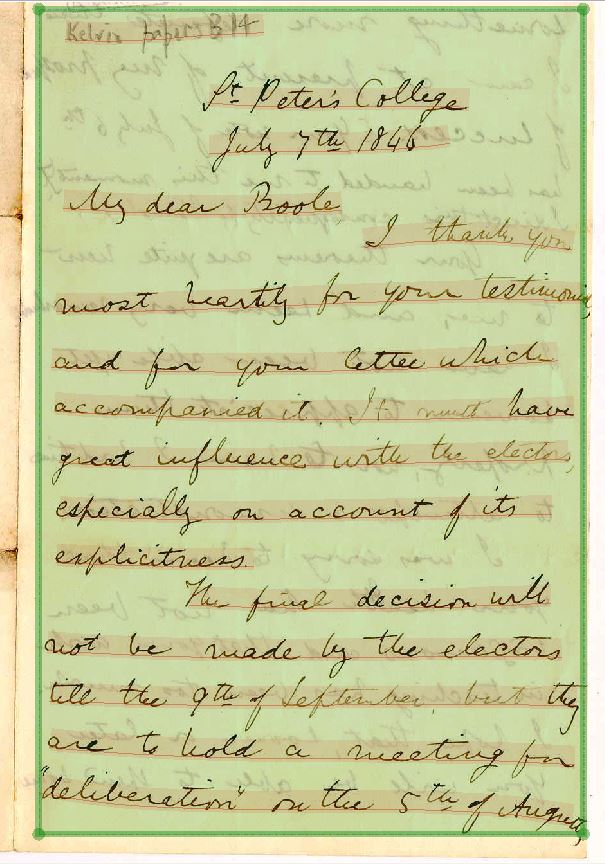 Kelvin papers B 14
St. Peter's College
July 7th 1846
My dear Boole,
I thank you
most heartily for your testimonial,
and for your letter which
accompanied it. It must have
great influence with the electors,
especially on account of its
explicitness.
The final decision will
not be made by the electors
till the 9th of September, but they
are to hold a meeting for
"deliberation" on the 5th of August,